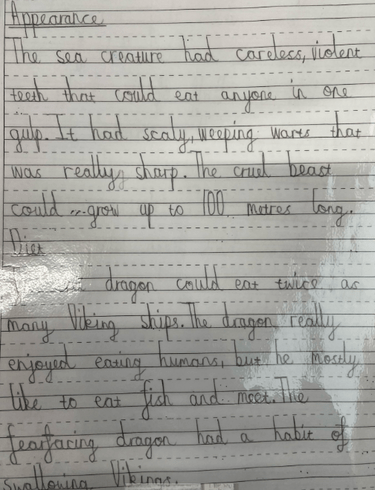 Appearance
The sea creature had careless, violent
teeth that could eat anyone in one
gulp. It had scaly, weeping warts that
was really sharp. The cruel beast
could grow up to 100 metres long.
Diet
dragon could eat twice as
many Viking ships. The dragon really
enjoyed eating humans, but he mostly
like to eat fish and meet. The
fearfaring dragon had a habit of
swallowing Vikings.